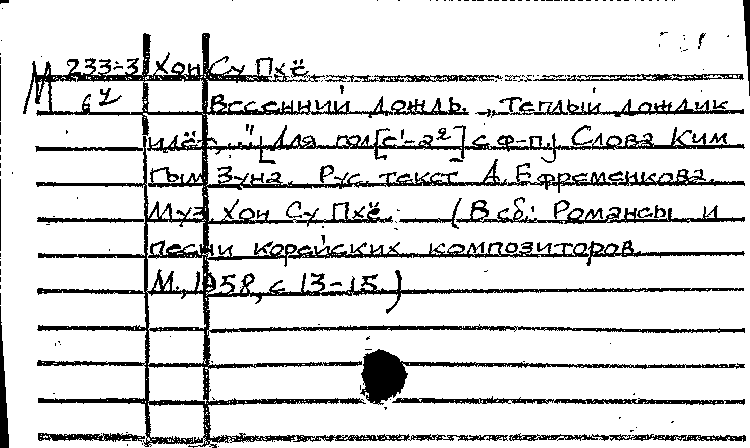 М 233-3 Хон Су Пхё
6
Весенний дождь. „Теплый дождик
идёт,..." [Для гол[c¹-a²] с ф-п.] Слова Ким
Гым Зуна. Рус. текст А. Ефременкова.
Муз. Хон Су Пхё. (В сб.: Романсы и
песни корейских композиторов.
М., 1958, с 13-15.)